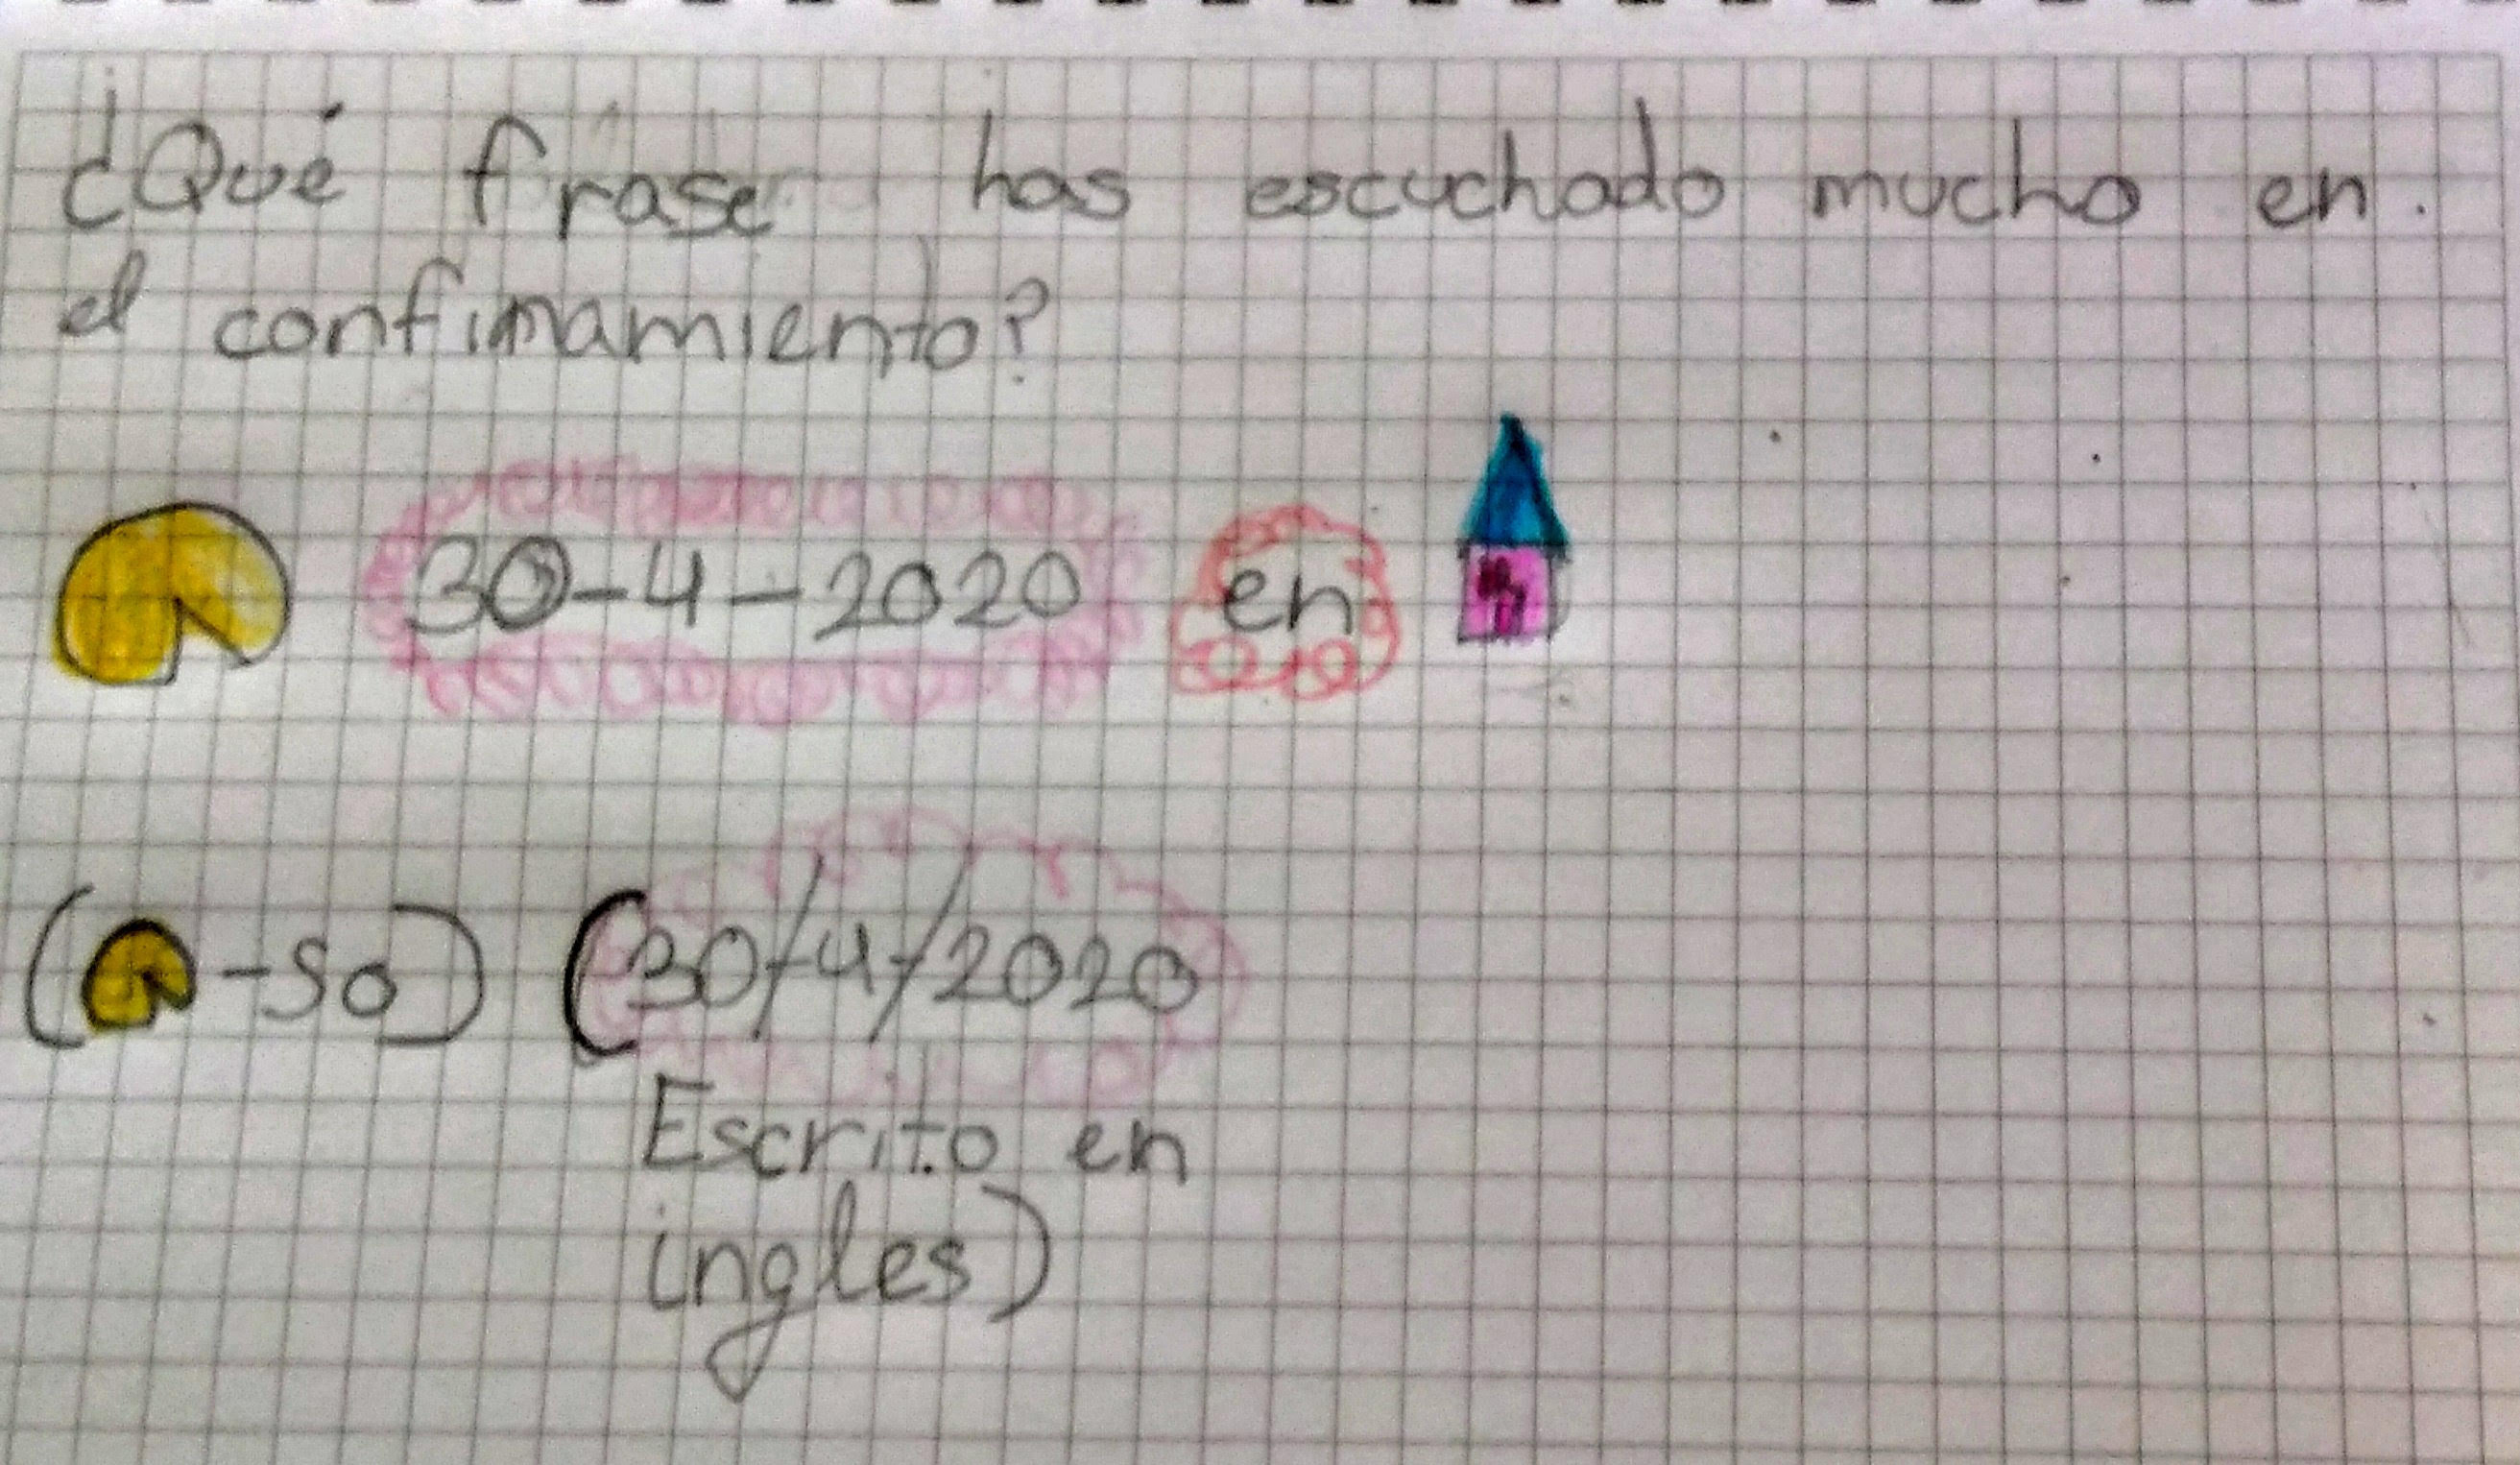 ¿Qué frase has escuchado mucho en
el confinamamiento?
30-4-2020 en
(-so) (30/4/2020
Escrito en
ingles)